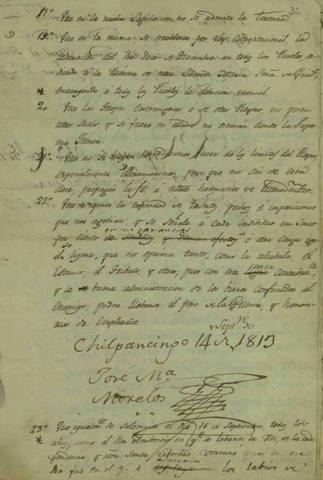 18.º Que en la nueva Legislacion no se admita la Tortura
19.º Que en la misma se establezca por Ley Constitucional la
celebracion del dia doce de Diciembre en todos los Pueblos, de
dicado a la Patrona de nuestra Libertad Maria Sma. de Guadalupe
encargando a todos los Pueblos la debocion mensual
20. Que las tropas Extrangeras o de otro Reyno no pisen
nuestro suelo, y si fuere en ayuda no estarán donde la Supre
ma Junta
21. Que no se hagan expediciones fuera de los limites del Reyno,
especialmente Ultramarinas, pero que no son de esta
clase, propagar la fe a nuestros hermanos de tierradentro.
22. Que se quite la infinidad de tributos, pechos e imposiciones
que nos agobian, y se señale a cada individuo un cinco
por ciento en sus ganancias u otra carga igual
de ligera, que no oprima tanto, como la alcabala, el
Estanco, el Tributo, y otros, pues con esta corta contribucion
y la buena administracion de los bienes confiscados al
Enemigo, podrá llevarse el peso de la Guerra, y honora
rios de Empleados
Chilpancingo 14 de Septre. de 1813
José Ma.
Morelos
23.º Que igualmente se solemnize el dia 16 de Septiembre todos los
años, como el dia
y nuestra Santa Libertad comenzó, pues en ese
dia fue en el que se los labios de